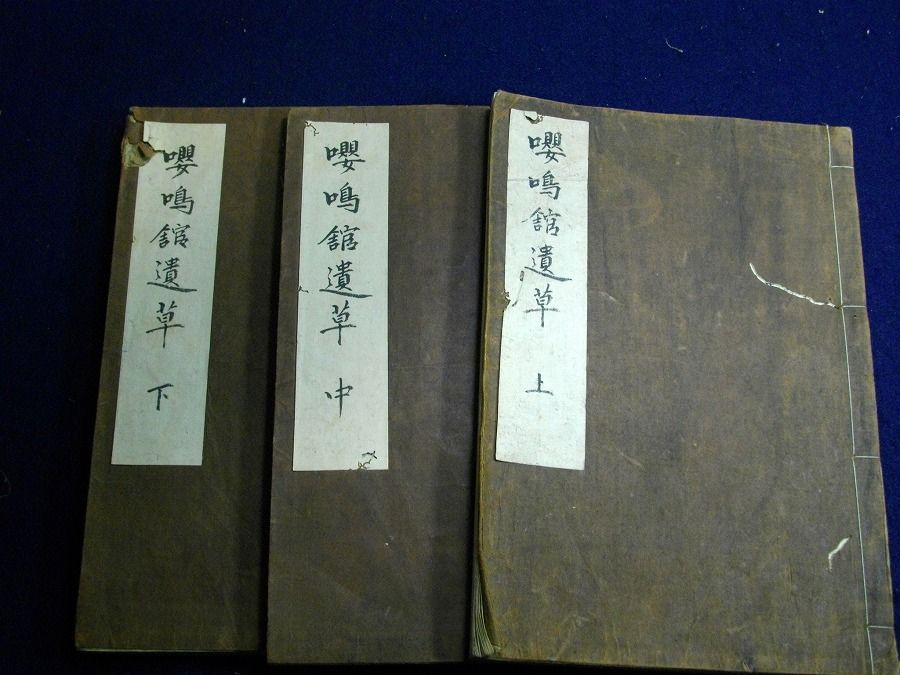 嚶鳴舘遺草 上
嚶鳴舘遺草 中
嚶鳴舘遺草 下